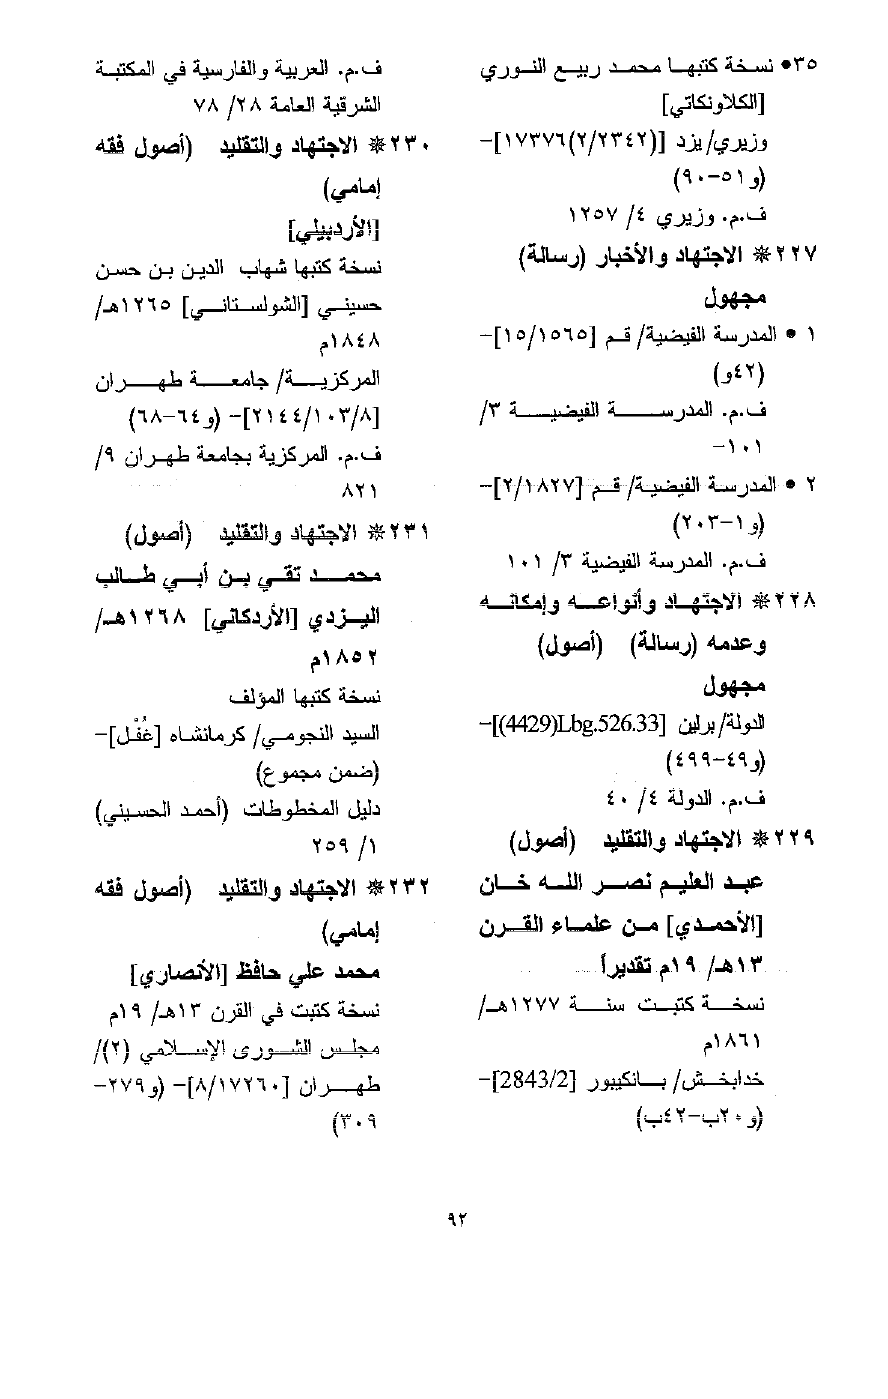 ٣٥• نسخة كتبها محمد ربيع النوري
[الكلاونكاتي]
وزيري/ يزد [(٢/٢٣٤٢)١٧٣٧٦]-
(و٥١-٩٠)
ف.م. وزيري ٤/ ١٢٥٧
٢٢٧* الاجتهاد والأخبار (رسالة)
مجهول
١ • المدرسة الفيضية/ قم [١٥/١٥٦٥]-
(٤٢و)
ف.م. المدرسة الفيضية ٣/
١٠١-
٢ • المدرسة الفيضية/ قم [٢/١٨٢٧]-
(و١-٢٠٣)
ف.م. المدرسة الفيضية ٣/ ١٠١
٢٢٨* الاجتهاد وأنواعه وإمكانه
وعدمه (رسالة) (أصول)
مجهول
الدولة/ برلين [Lbg.526.33(4429)]-
(و٤٩-٤٩٩)
ف.م. الدولة ٤/ ٤٠
٢٢٩* الاجتهاد والتقليد (أصول)
عبد العليم نصر الله خان
[الأحمدي] من علماء القرن
١٣هـ/ ١٩م تقديراً
نسخة كتبت سنة ١٢٧٧هـ/
١٨٦١م
خدابخش/ بانكيبور [2843/2]-
(و٢٠ب-٤٢ب)
ف.م. العربية والفارسية في المكتبة
الشرقية العامة ٢٨/ ٧٨
٢٣٠* الاجتهاد والتقليد (أصول فقه
إمامي)
[الأردبيلي]
نسخة كتبها شهاب الدين بن حسن
حسيني [الشولستاني] ١٢٦٥هـ/
١٨٤٨م
المركزية/ جامعة طهران
[٢١٤٤/١٠٣/٨]- (و٦٤-٦٨)
ف.م. المركزية بجامعة طهران ٩/
٨٢١
٢٣١* الاجتهاد والتقليد (أصول)
محمد تقي بن أبي طالب
اليزدي [الأردكاني] ١٢٦٨هـ/
١٨٥٢م
نسخة كتبها المؤلف
السيد النجومي/ كرمانشاه [غُفْل]-
(ضمن مجموع)
دليل المخطوطات (أحمد الحسيني)
١/ ٢٥٩
٢٣٢* الاجتهاد والتقليد (أصول فقه
إمامي)
محمد علي حافظ [الأنصاري]
نسخة كتبت في القرن ١٣هـ/ ١٩م
مجلس الشورى الإسلامي (٢)/
طهران [٨/١٧٢٦٠]- (و٢٧٩-
٣٠٩)
٩٢